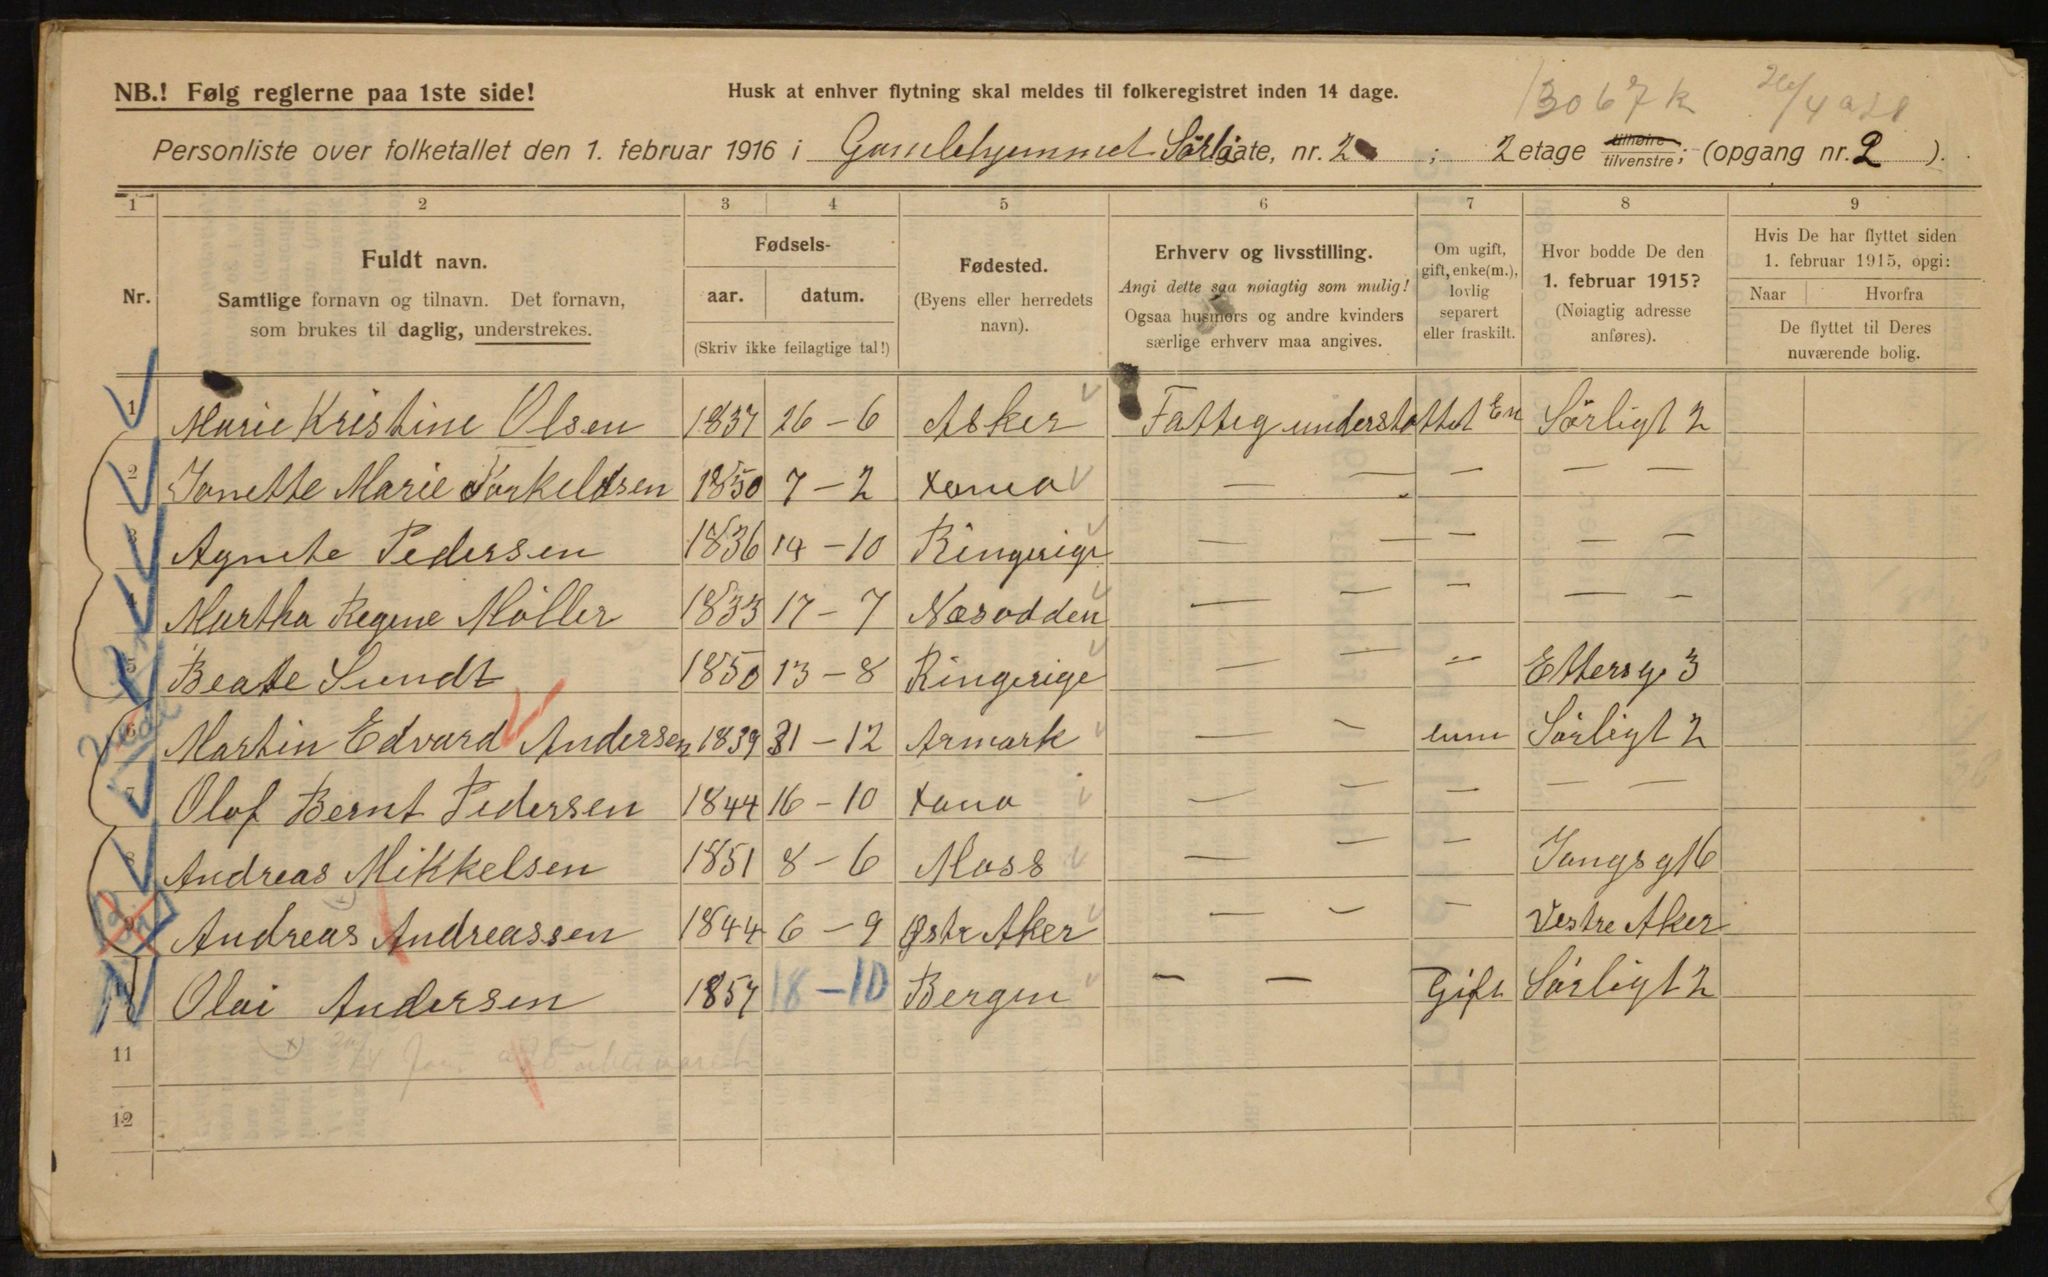 NB.! Følg reglerne paa 1ste side!
Husk at enhver flytning skal meldes til folkeregistret inden 14 dage.
Personliste over folketallet den 1. februar 1916 i Gamlehjemmet Sörligate, nr. 2 ; 2 etage tilhøire tilvenstre; (opgang nr. 2 ).
1 2 3 4 5 6 7 8 9
Nr.
Fuldt navn.
Samtlige fornavn og tilnavn. Det fornavn,
som brukes til daglig, understrekes.
Fødsels-
aar. datum.
(Skriv ikke feilagtige tal!)
Fødested.
(Byens eller herredets
navn).
Erhverv og livsstilling.
Angi dette saa nøiagtig som mulig!
Ogsaa husmors og andre kvinders
særlige erhverv maa angives.
Om ugift,
gift, enke(m.),
lovlig
separert
eller fraskilt.
Hvor bodde De den
1. februar 1915?
(Nøiagtig adresse
anføres).
Hvis De har flyttet siden
1. februar 1915, opgi:
Naar Hvorfra
De flyttet til Deres
nuværende bolig.
1 Marie Kristine Olsen 1837 26 - 6 Asker Fattigunderstöttet En Sörligt 2
2 Janette Marie Torkeldsen 1850 7 - 2 Xania — — — — —
3 Agnete Pedersen 1836 14 - 10 Ringerige — — — — —
4 Martha Regine Möller 1833 17 - 7 Næsodden — — — — —
5 Beate Sundt 1850 13 - 8 Ringerige — — — Ettersg. 3
6 Martin Edvard Andersen 1839 31 - 12 Armark — — enm Sörligt 2
7 Olaf Bernt Pedersen 1844 16 - 10 Xania — — — — —
8 Andreas Mikkelsen 1851 8 - 6 Moss — — — Jongsg 16
9 Andreas Andreassen 1844 6 - 9 Østre Aker — — — Vestre Aker
10 Olai Andersen 1857 18 - 10 Bergen — — Gift Sörligt 2
11
12